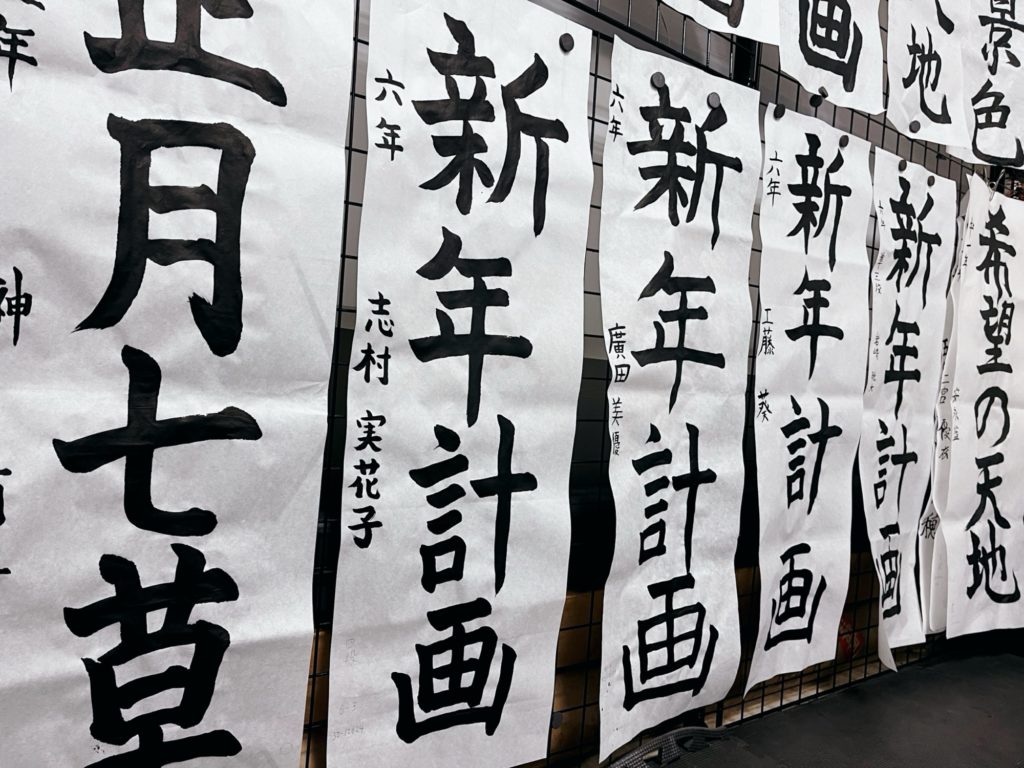 年
神
正月七草
新年計画
六年
志村 実花子
新年計画
六年
廣田 美優
新年計画
六年
工藤 葵
新年計画
希望の天地
画
地
景色